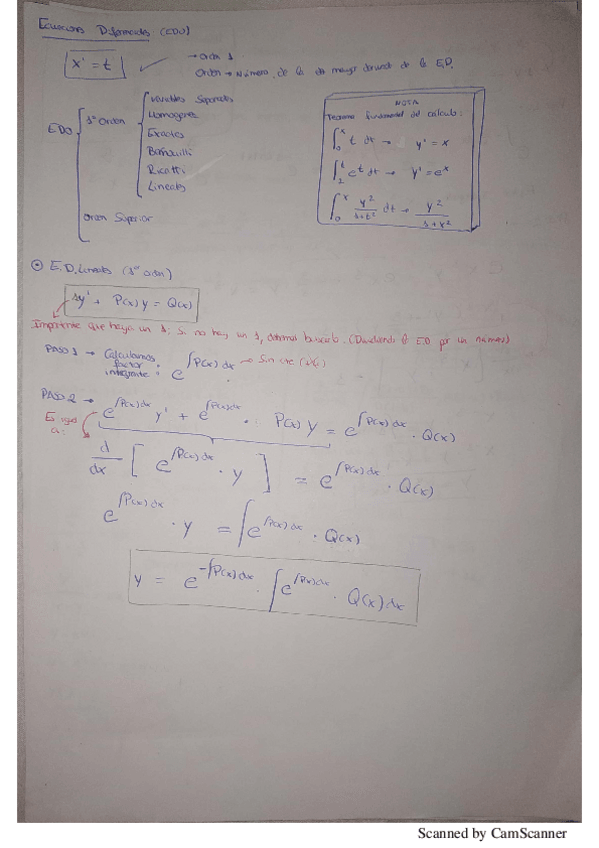 Ecuaciones Diferenciales (EDO)
x' = t
→ Orden 1
Orden → Número de la mayor derivada de la E.D.
EDO
1er Orden
Variables Separables
Homogenea
Exactas
Bernouilli
Ricatti
Lineales
Orden Superior
NOTA
Teorema fundamental del calculo:
∫₀ˣ t dt → y' = x
∫₂ᵗ eᵗ dt → y' = eˣ
∫₀ˣ y²/(1+t²) dt → y²/(1+x²)
⊙ E.D. Lineales (1er orden)
1y' + P(x) y = Q(x)
Importante que haya un 1. Si no hay un 1, buscarlo. (Dividiendo la E.D por un número)
PASO 1 → Calculamos factor integrante: e^∫P(x) dx → Sin cte
PASO 2 → e^∫P(x)dx y' + e^∫P(x)dx · P(x) y = e^∫P(x)dx · Q(x)
Es igual a:
d/dx [ e^∫P(x)dx · y ] = e^∫P(x)dx · Q(x)
e^∫P(x)dx · y = ∫e^∫P(x)dx · Q(x)
y = e^-∫P(x)dx · ∫e^∫P(x)dx · Q(x) dx
Scanned by CamScanner